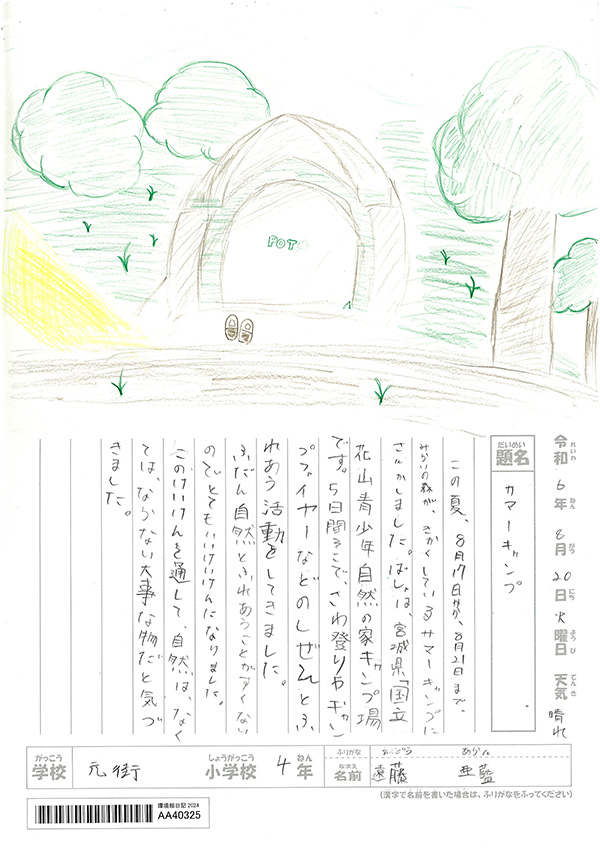 POT
令和6年8月20日火曜日 天気 晴れ
れいわ ねん がつ にち ようび てんき
だいめい
題名
サマーキャンプ
この夏、8月17日から、8月21日まで、
みらいの森が、きかくしているサマーキャンプに
さんかしました。ばしょは、宮城県「国立
花山青少年自然の家キャンプ場
です。5日間そこで、さわ登りやキャン
プファイヤーなどのしぜんとふ
れあう活動をしてきました。
ふだん自然とふれあうことがすくない
のでとてもいいけいけんになりました。
このけいけんを通して、自然は、なく
ては、ならない大事な物だと気づ
きました。
がっこう
学校
元街
しょうがっこう
小学校
4
ねん
年
ふりがな
えんどう
なまえ
名前
遠藤 亜藍
(漢字で名前を書いた場合は、ふりがなをふってください)
環境絵日記 2024
AA40325